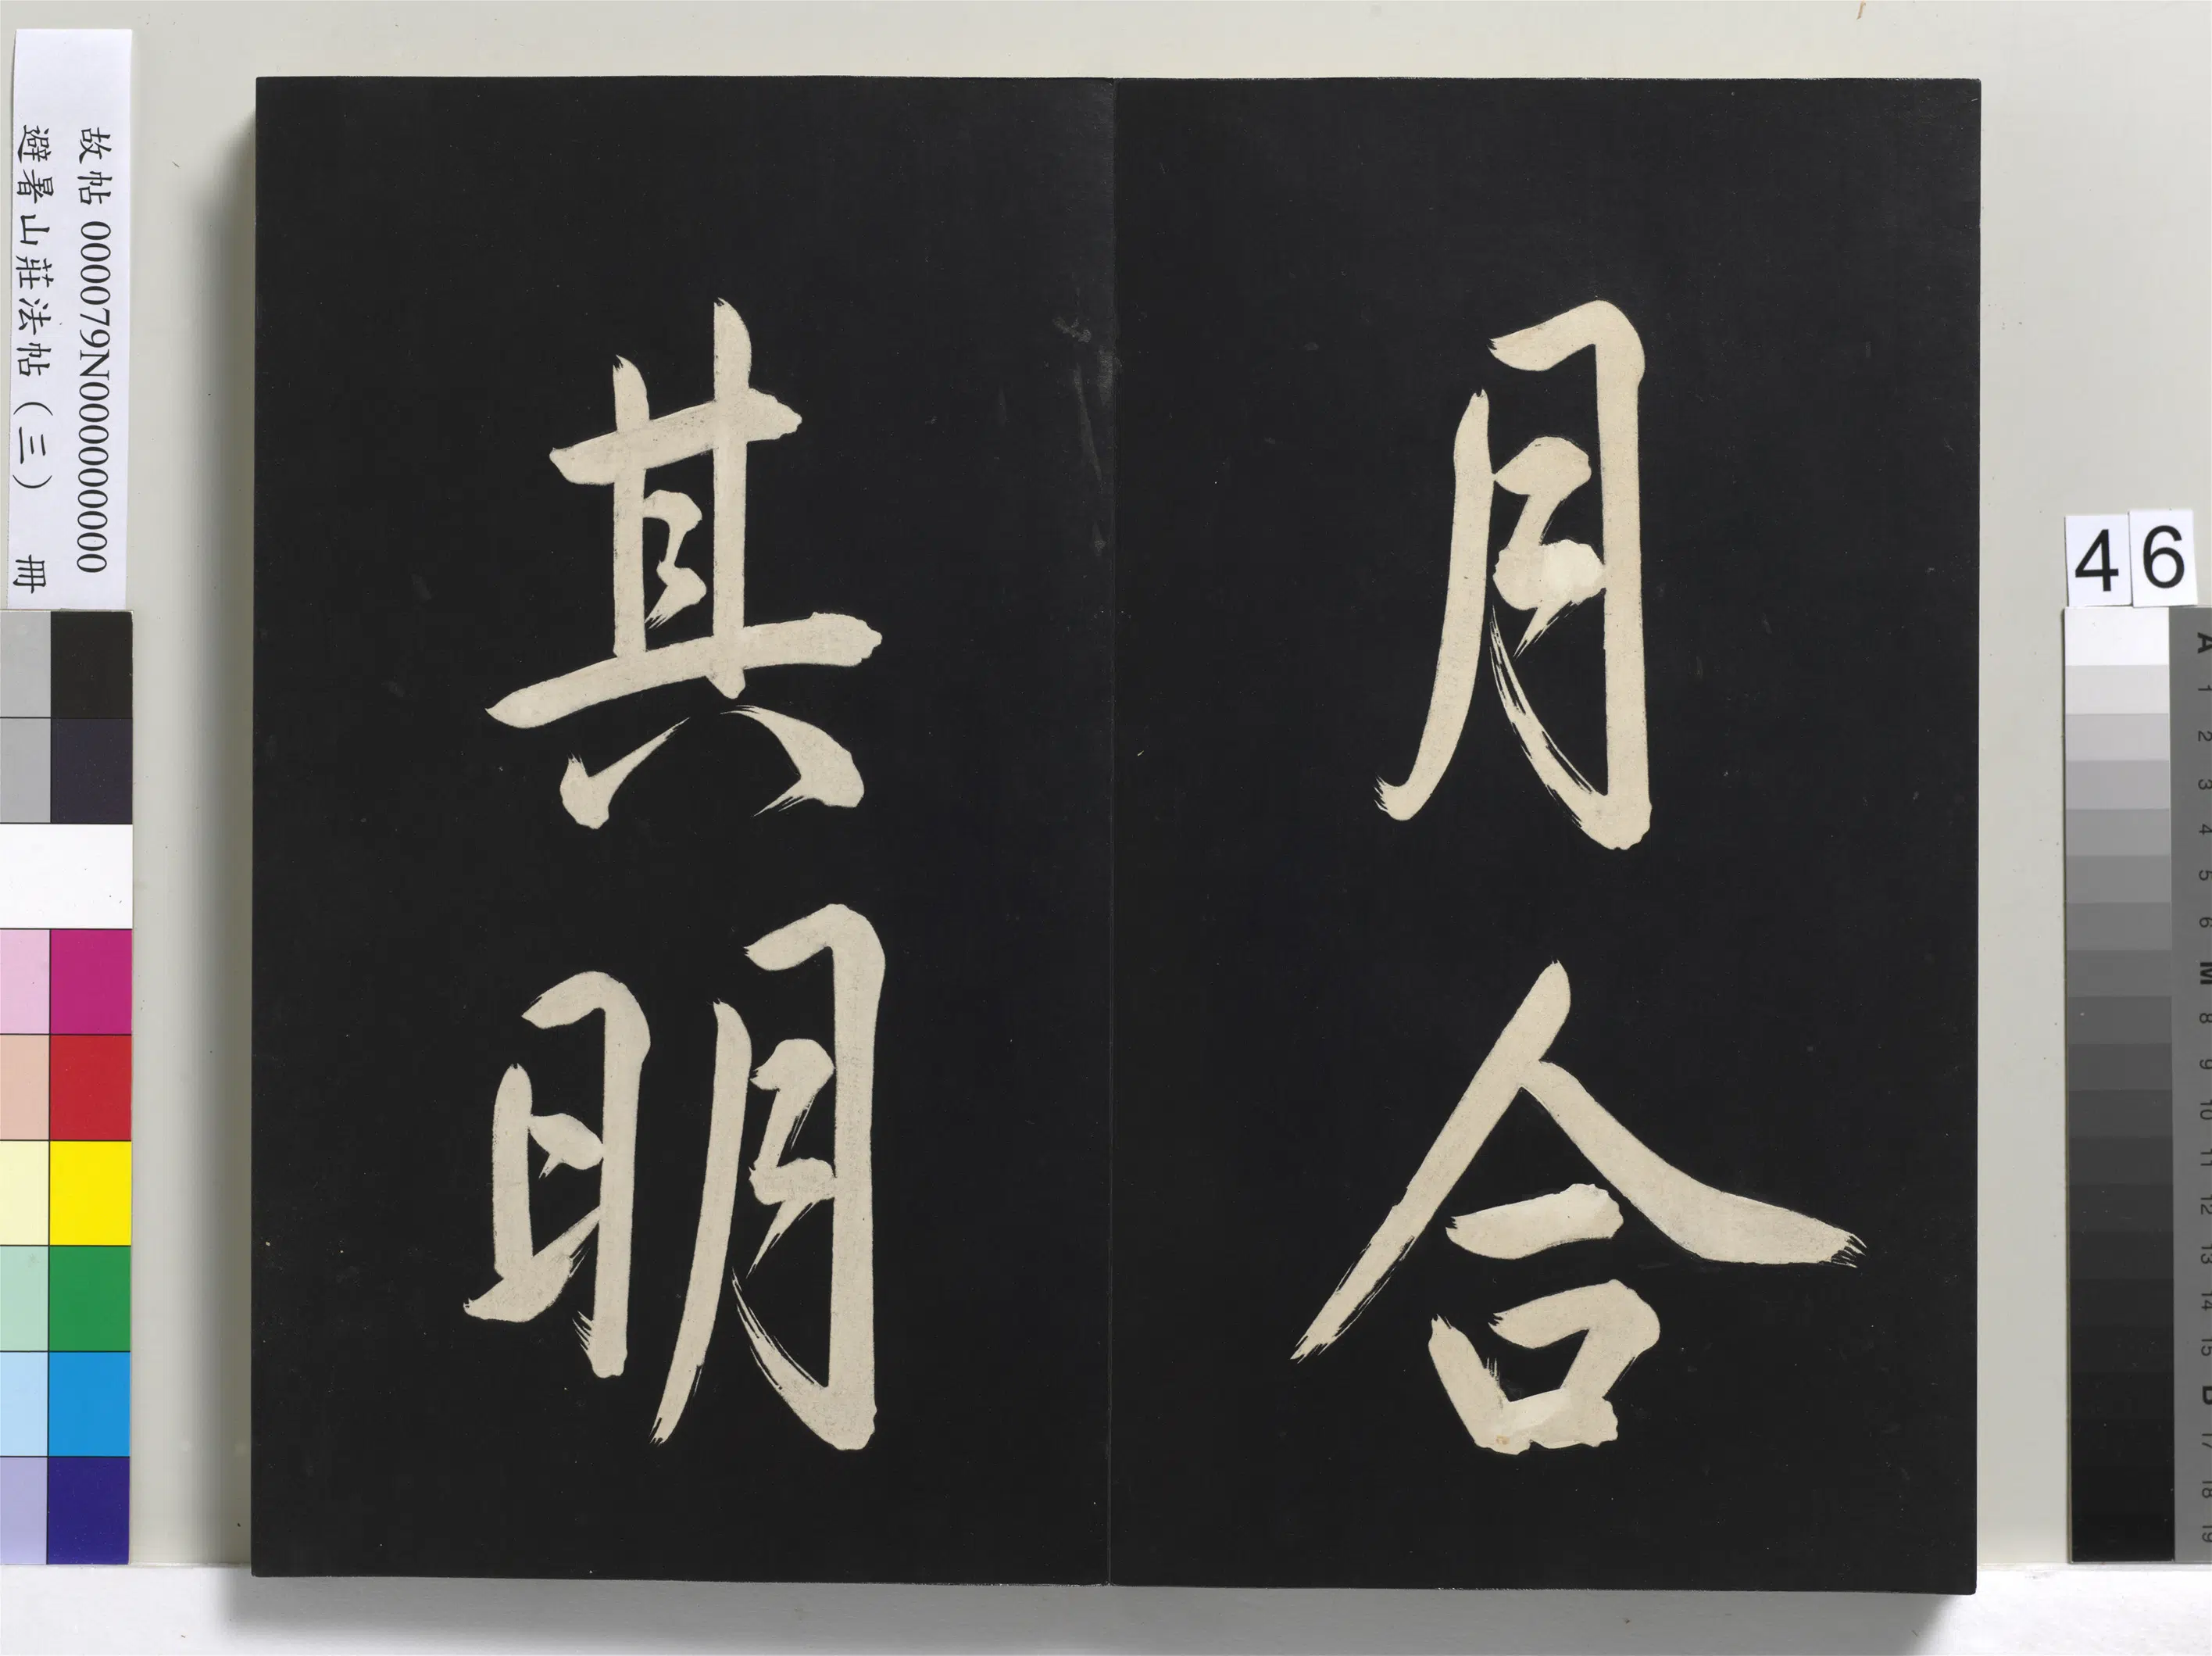 月合
其明
故帖 000079N000000000
避暑山莊法帖（三） 冊
46
A
1
2
3
4
5
6
M
8
9
10
11
12
13
14
15
B
17
18
19